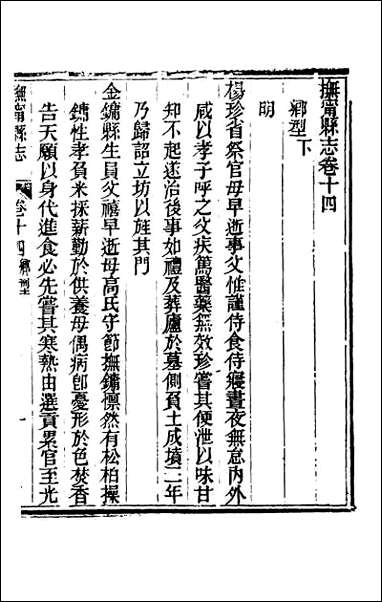 撫甯縣志卷十四
鄉型下
明
楊珍省祭官母早逝事父惟謹侍食侍寢晝夜無怠內外
咸以孝子呼之父疾篤醫藥無效珍嘗其便泄以味甘
知不起遂治後事如禮及葬廬於墓側負土成墳三年
乃歸詔立坊以旌其門
金鏞縣生員父禧早逝母高氏守節撫鏞懍然有松柏操
鏞性孝負米採薪勤於供養母偶病卽憂形於色焚香
告天願以身代進食必先嘗其寒熱由選貢累官至光
撫甯縣志
卷十四鄉型